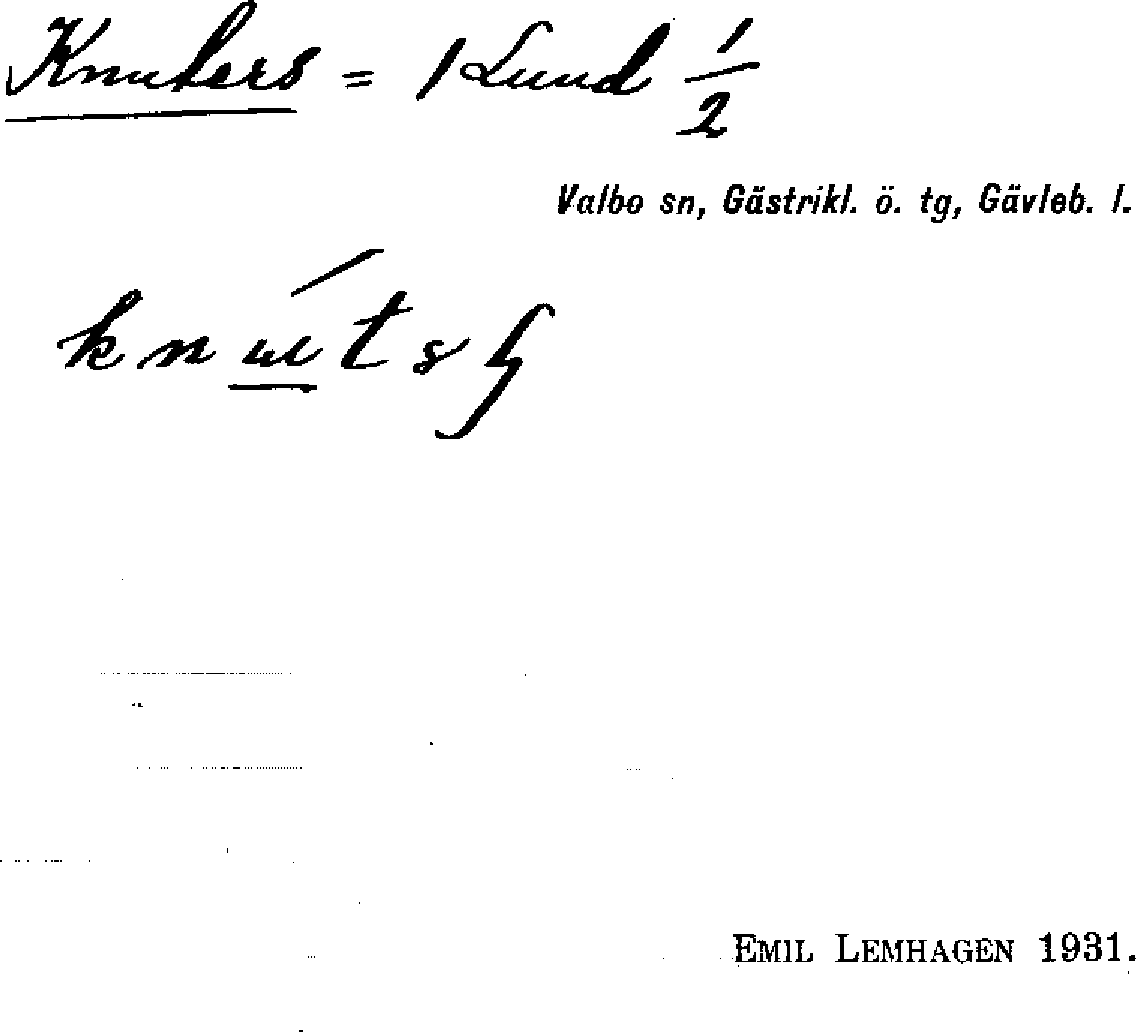 Knuters = Lund 1/2
Valbo sn, Gästrikl. ö. tg, Gävleb. l.
EMIL LEMHAGEN 1931.